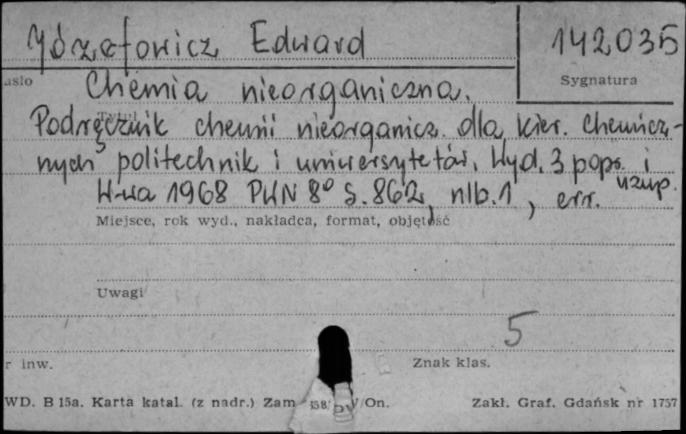 Józefowicz Edward 142035
asło Chemia nieorganiczna. Sygnatura
Podręcznik chemii nieorganicz. dla kier. chemicz-
nych politechnik i uniwersytetów. Wyd. 3 popr. i
W-wa 1968 PWN 8° s. 862, nlb. 1, err. uzup.
Miejsce, rok wyd., nakładca, format, objętość
Uwagi
5
r inw. Znak klas.
WD. B 15a. Karta katal. (z nadr.) Zam V/On. Zakł. Graf. Gdańsk nr 1757